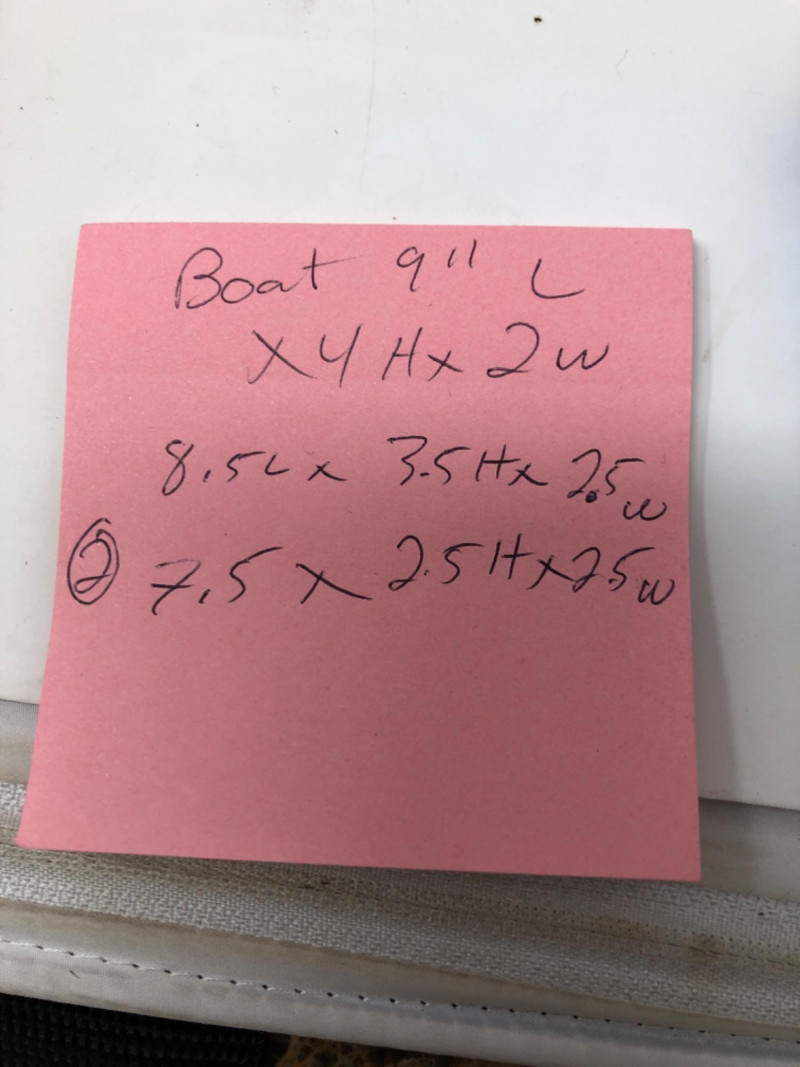 Boat 9" L
X 4 H x 2 W
8.5 L x 3.5 H x 2.5 W
② 7.5 x 2.5 H x 2.5 W